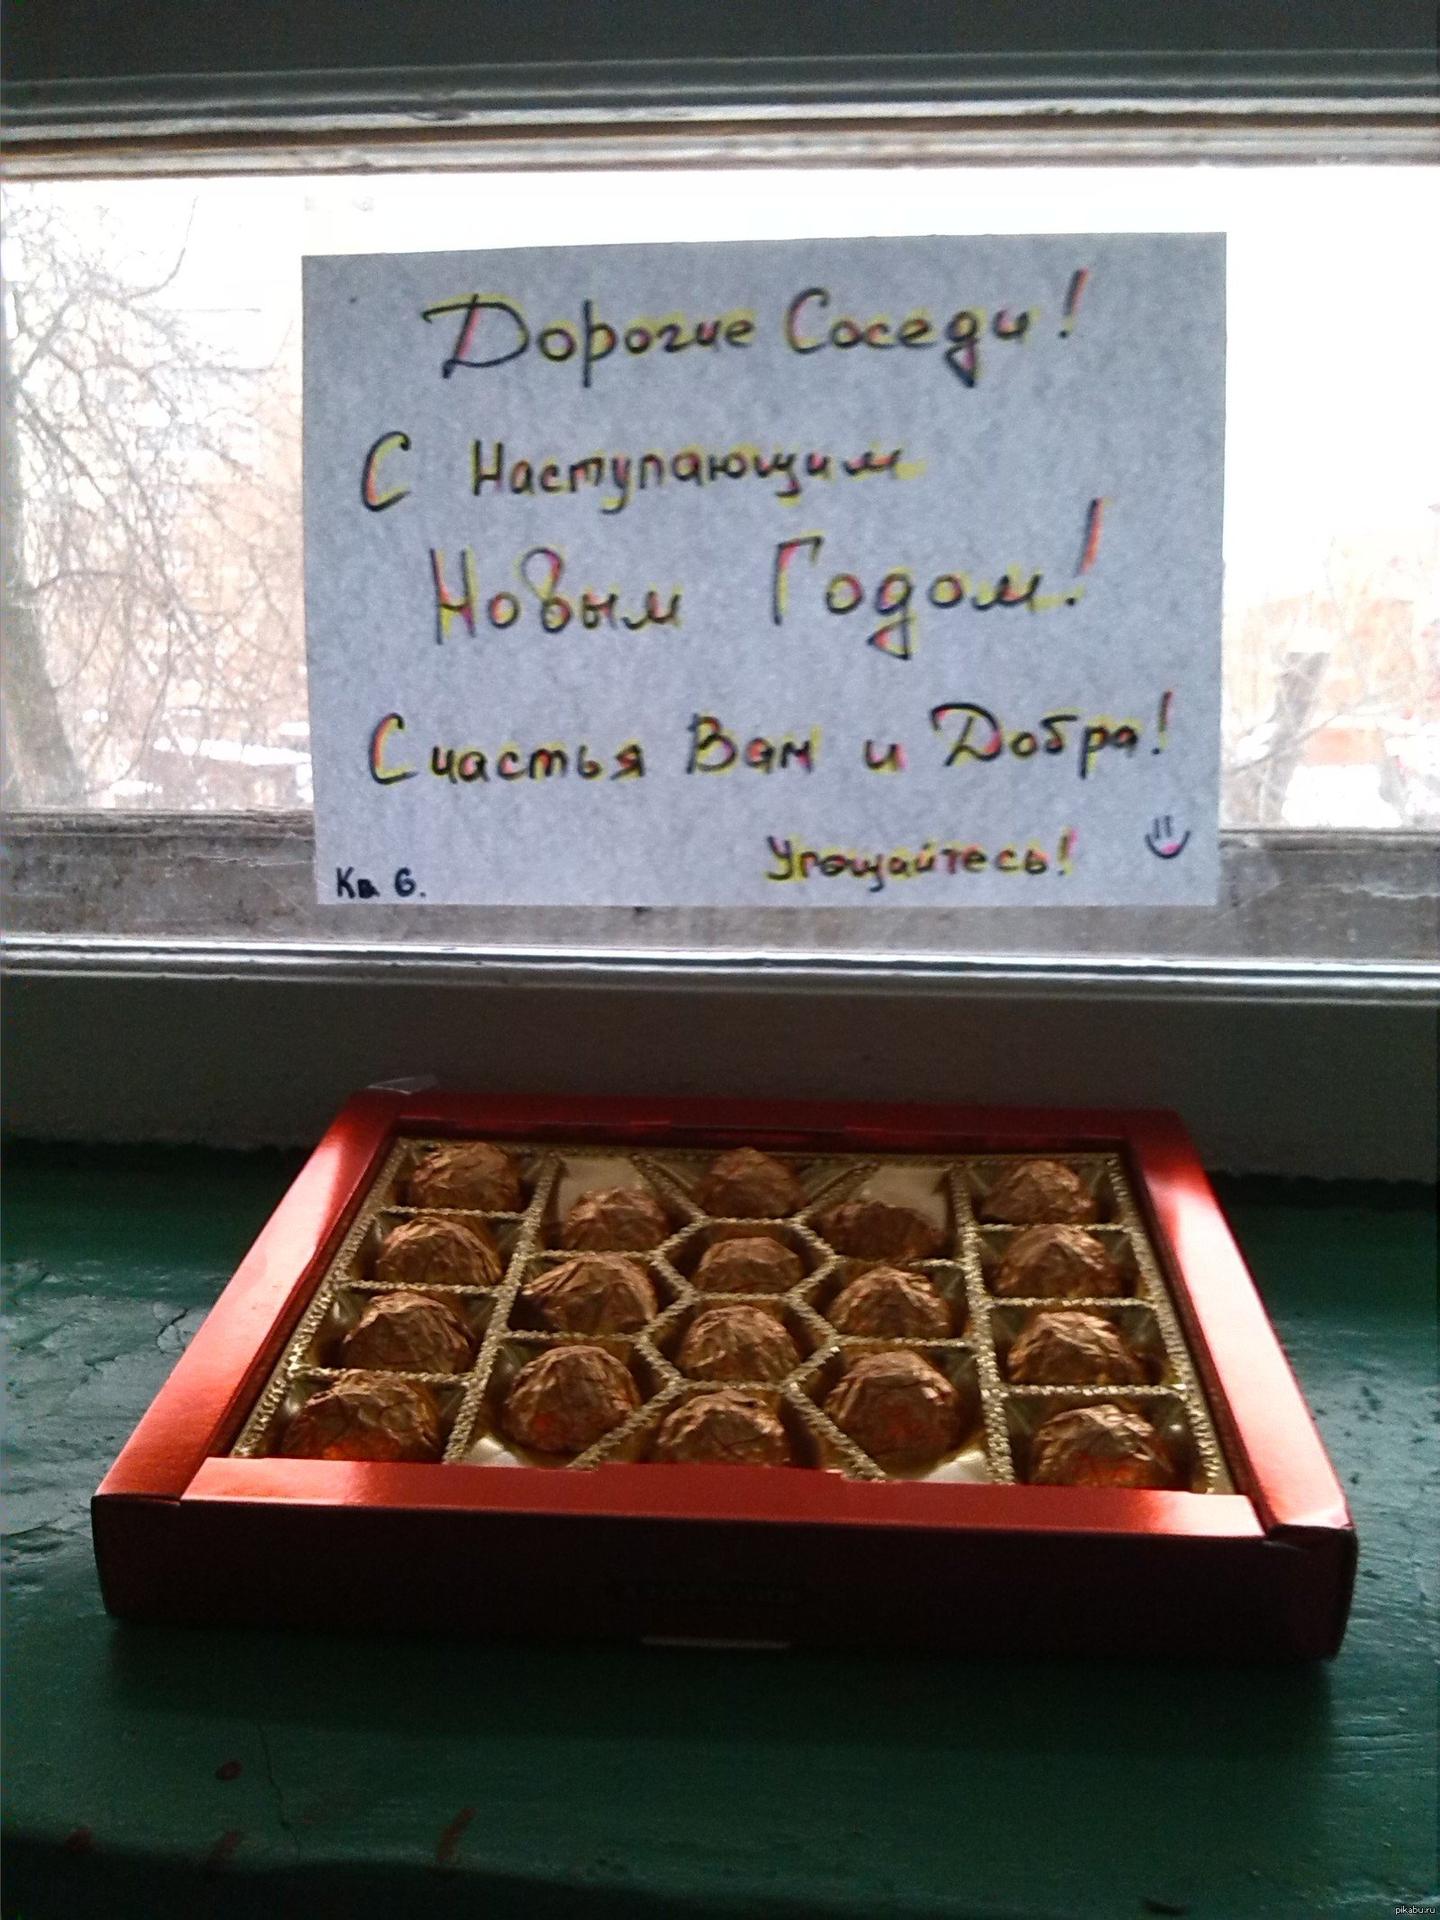 Дорогие Соседи!
С Наступающим
Новым Годом!
Счастья Вам и Добра!
Угощайтесь!
Кв 6.
pikabu.ru